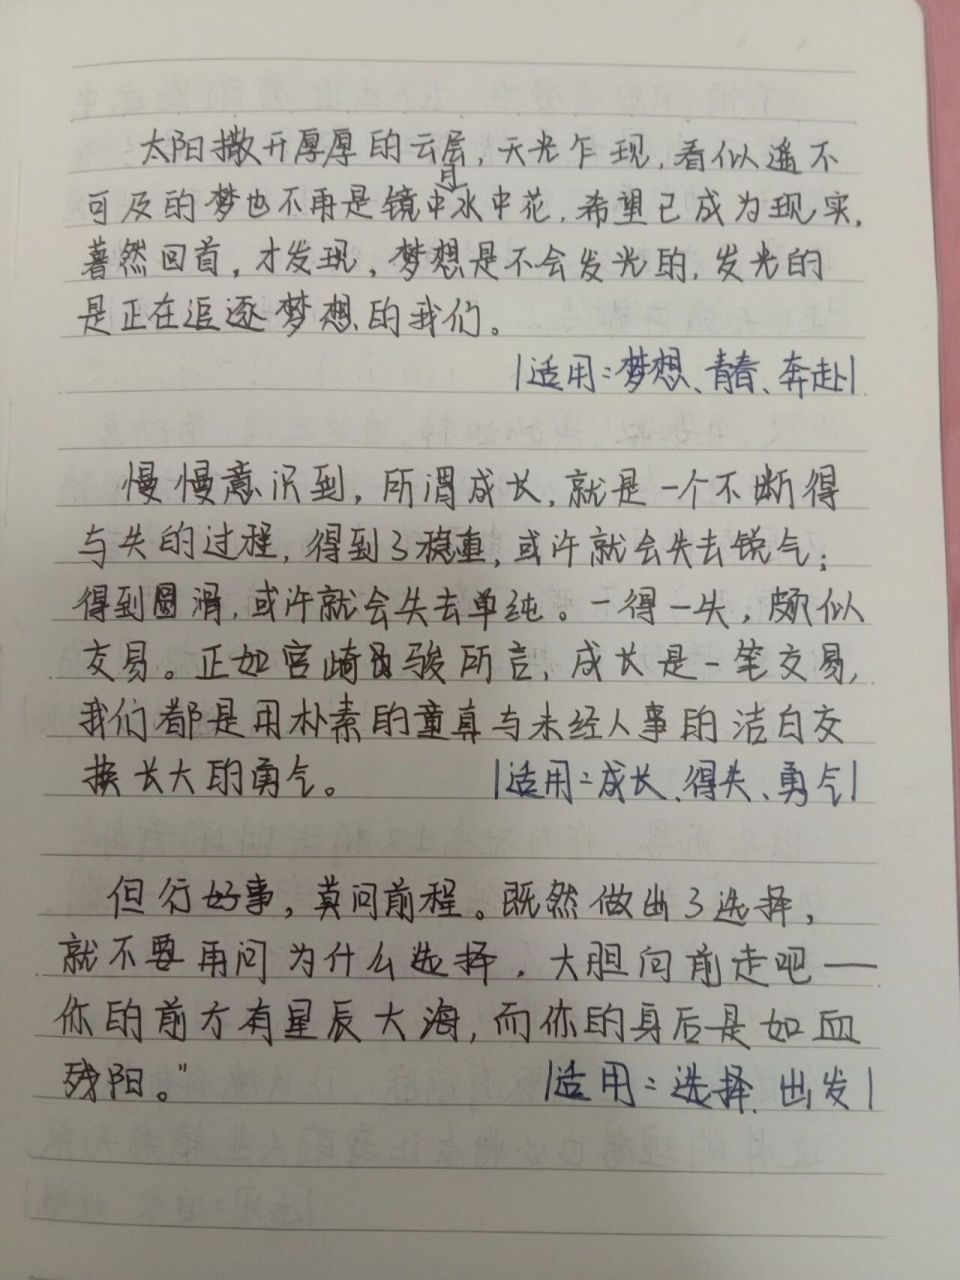 太阳撒开厚厚的云层，天光乍现，看似遥不
可及的梦也不再是镜中月水中花，希望已成为现实，
蓦然回首，才发现，梦想是不会发光的，发光的
是正在追逐梦想的我们。
|适用：梦想、青春、奔赴|
慢慢意识到，所谓成长，就是一个不断得
与失的过程，得到了稳重，或许就会失去锐气；
得到圆滑，或许就会失去单纯。一得一失，颇似
交易。正如宫崎骏所言，成长是一笔交易，
我们都是用朴素的童真与未经人事的洁白交
换长大的勇气。 |适用：成长、得失、勇气|
但行好事，莫问前程。既然做出了选择，
就不要再问为什么选择，大胆向前走吧——
你的前方有星辰大海，而你的身后是如血
残阳。” |适用：选择、出发|